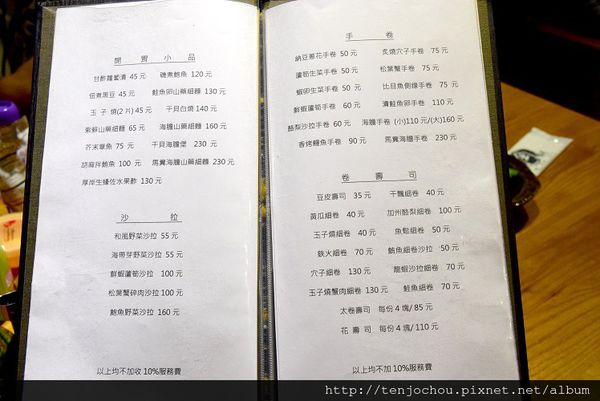 開 胃 小 品
甘酢蘿蔔漬 45 元 磯煮鮑魚 120 元
佃煮黑豆 45 元 鮭魚卵山藥細麵 130 元
玉 子 燒(2 片) 45 元 干貝白燒 140 元
紫蘇山藥細麵 65 元 海膽山藥細麵 160 元
芥末章魚 75 元 干貝海膽堡 230 元
胡麻拌鮑魚 100 元 馬糞海膽山藥細麵 230 元
厚岸生蠔佐水果酢 130 元
沙 拉
和風野菜沙拉 55 元
海帶芽野菜沙拉 55 元
鮮蝦蘆筍沙拉 100 元
松葉蟹碎肉沙拉 100 元
鮑魚野菜沙拉 160 元
以上均不加收 10%服務費
手 卷
納豆蔥花手卷 50 元 炙燒穴子手卷 75 元
蘆筍生菜手卷 50 元 松葉蟹手卷 75 元
蝦卵生菜手卷 50 元 比目魚側緣手卷 75 元
鮮蝦蘆筍手卷 60 元 漬鮭魚卵手卷 110 元
酪梨沙拉手卷 60 元 海膽手卷 (小)110 元/(大)160 元
香烤鰻魚手卷 90 元 馬糞海膽手卷 230 元
卷 壽 司
豆皮壽司 35 元 干瓢細卷 40 元
黃瓜細卷 40 元 加州酪梨細卷 100 元
玉子燒細卷 40 元 魚鬆細卷 50 元
鉄火細卷 70 元 鮪魚細卷沙拉 50 元
穴子細卷 130 元 龍蝦沙拉細卷 70 元
玉子燒蟹肉細卷 130 元 鮭魚細卷 70 元
太卷壽司 每份 4 塊/ 85 元
花 壽 司 每份 4 塊/ 110 元
以上均不加收 10%服務費
http://tenjochou.pixnet.net/album